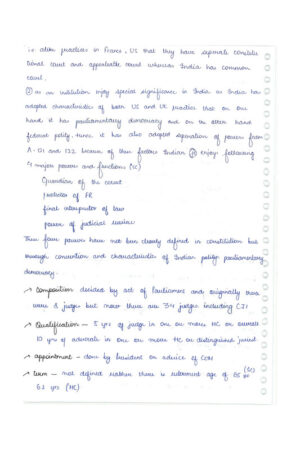 i.e other practices in France, US that they have separate constitu
tional court and appealable court whereas India has common
court.
② as an institution enjoy special significance in India as India has
adopted characteristics of both US and UK practice that on one
hand it has parliamentary democracy and on the other hand
federal polity. hence it has also adopted separation of powers from
A-121 and 122 because of these factors Indian enjoys following
4 major powers and functions (SC)
Guardian of the const
protector of FR
final interpreter of law
power of judicial review
These four powers have not been clearly defined in constitution but
through convention and characteristics of Indian polity parliamentary
democracy.
→ Composition decides by act of Parliament and originally there
were 8 judge but now there are 34 judges including CJI
→ Qualification - 5 yrs of judge in one or more HC or
10 yrs of advocate in one or more HC or distinguished jurist
→ appointment - done by President on advice of COM
→ term - not defined rather there is retirement age of 65 yr (SC)
62 yrs (HC)